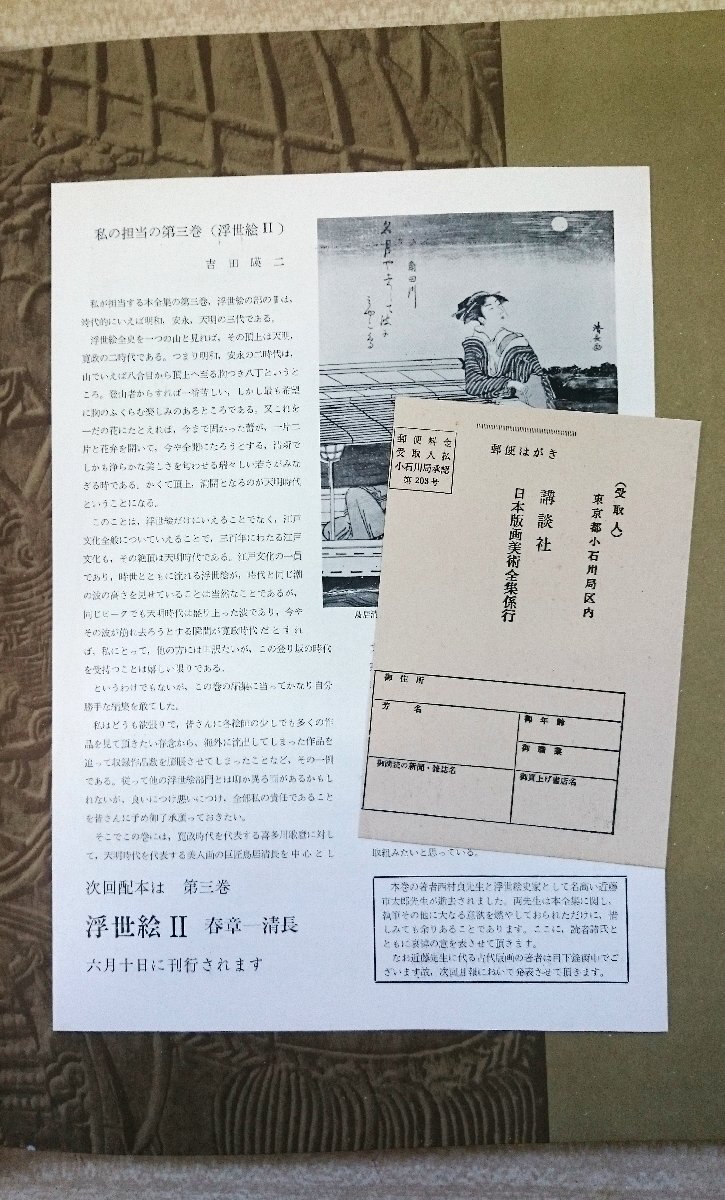 私の担当の第三巻(浮世絵Ⅱ)
吉田暎二
私が担当する本全集の第三巻、浮世絵の部のⅡは、
時代的にいえば明和、安永、天明の三代である。
浮世絵全史を一つの山と見れば、その頂上は天明、
寛政の二時代である。つまり明和、安永の二時代は、
山でいえば八合目から頂上へ至る胸つき八丁というと
ころ。登山者からすれば一番苦しい、しかし最も希望
に胸のふくらむ楽しみのあるところである。又これを
一だの花にたとえれば、今まで固かった蕾が、一片二
片と花弁を開いて、今や全開になろうとする、清新で
しかも浄らかな美しさを匂わせる瑞々しい若さがみな
ぎる時である。かくて頂上、満開となるのが天明時代
ということになる。
このことは、浮世絵だけにいえることでなく、江戸
文化全般についていえることで、三百年にわたる江戸
文化も、その絶頂は天明時代である。江戸文化の一員
であり、時世とともに流れる浮世絵が、時代と同じ潮
の波の高さを見せていることは当然なことであるが、
同じピークでも天明時代は盛り上った波であり、今や
その波が崩れ去ろうとする瞬間が寛政時代だとすれ
ば、私にとって、他の方には申訳たいが、この登り坂の時代
を受持つことは嬉しい限りである。
というわけでもないが、この巻の編集に当ってかなり自分
勝手な編集を敢てした。
私はどうも欲張りで、皆さんに各絵師の少しでも多くの作
品を見て頂きたい存念から、海外に流出してしまった作品を
追って収録作品数を膨脹させてしまったことなど、その一例
である。従って他の浮世絵部門とは聊か異る面があるかもし
れないが、良いにつけ悪いにつけ、全部私の責任であること
を皆さんに予め御了承願っておきたい。
そこでこの巻には、寛政時代を代表する喜多川歌麿に対し
て、天明時代を代表する美人画の巨匠鳥居清長を中心とし
取組みたいと思っている。
清長画
鳥居清
郵便はがき
郵便料金
受取人払
小石川局承認
第203号
(受取人)
東京都小石川局区内
講談社
日本版画美術全集係行
御住所
芳名
御年齢
御職業
御購読の新聞・雑誌名
御買上げ書店名
次回配本は 第三巻
浮世絵Ⅱ 春章―清長
六月十日に刊行されます
本巻の著者西村貞先生と浮世絵史家として名高い近藤
市太郎先生が逝去されました。両先生は本全集に関し、
執筆その他に大なる意欲を燃やしておられただけに、惜
しみても余りあることであります。ここに、読者諸氏と
ともに哀悼の意を表させて頂きます。
なお近藤先生に代る古代版画の著者は目下銓衡中でご
ざいます故、次回月報において発表させて頂きます。